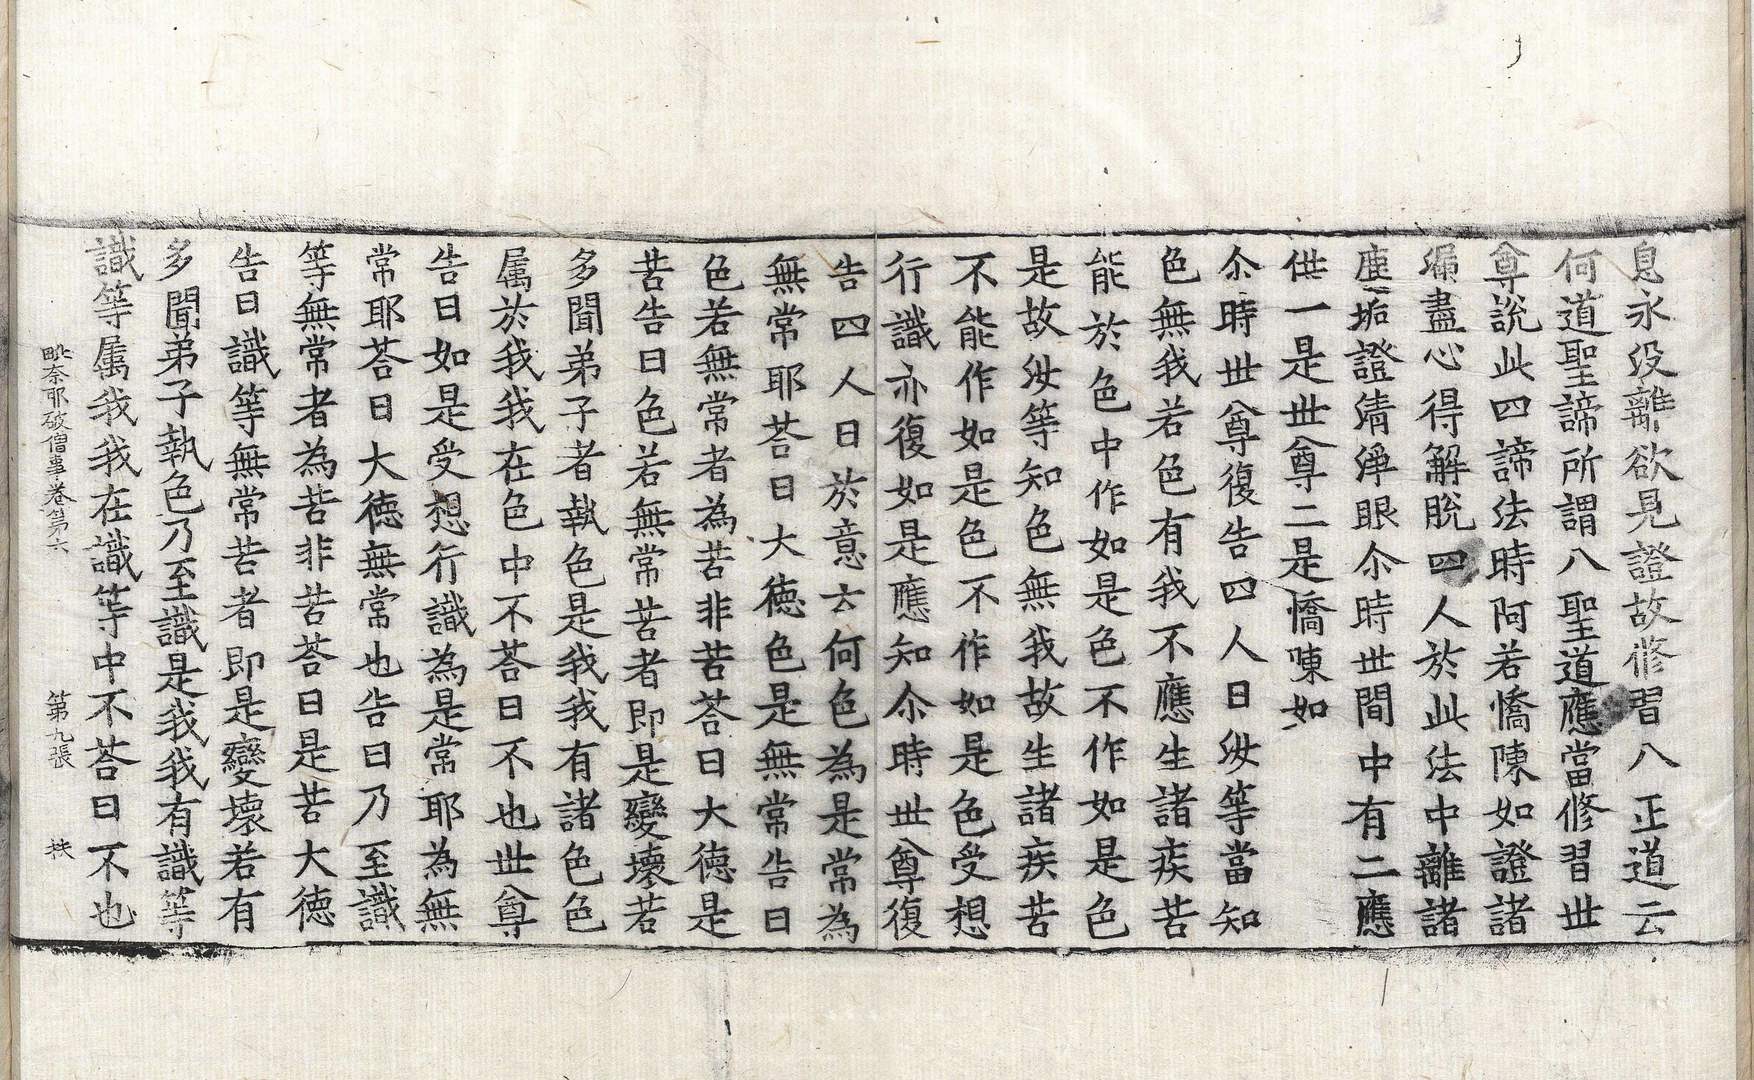 息永没離欲見證故修習八正道云
何道聖諦所謂八聖道應當修習世
尊說此四諦法時阿若憍陳如證諸
漏盡心得解脫四人於此法中離諸
塵垢證淸淨眼尒時世間中有二應
供一是世尊二是憍陳如
尒時世尊復告四人曰汝等當知
色無我若色有我不應生諸疾苦
能於色中作如是色不作如是色
是故汝等知色無我故生諸疾苦
不能作如是色不作如是色受想
行識亦復如是應知尒時世尊復
告四人曰於意云何色為是常為
無常耶荅曰大德色是無常告曰
色若無常者為苦非苦荅曰大德是
苦告曰色若無常苦者即是變壞若
多聞弟子者執色是我我有諸色色
属於我我在色中不荅曰不也世尊
告曰如是受想行識為是常耶為無
常耶荅曰大德無常也告曰乃至識
等無常者為苦非苦荅曰是苦大德
告曰識等無常苦者即是變壞若有
多聞弟子執色乃至識是我我有識等
識等属我我在識等中不荅曰不也
毗奈耶破僧事卷第六 第九張 秩